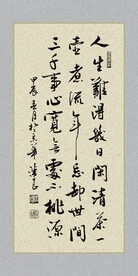 人生難得幾日閑清茶一
壺煮流年忘却世間
三千事心寬無處不桃源
甲辰